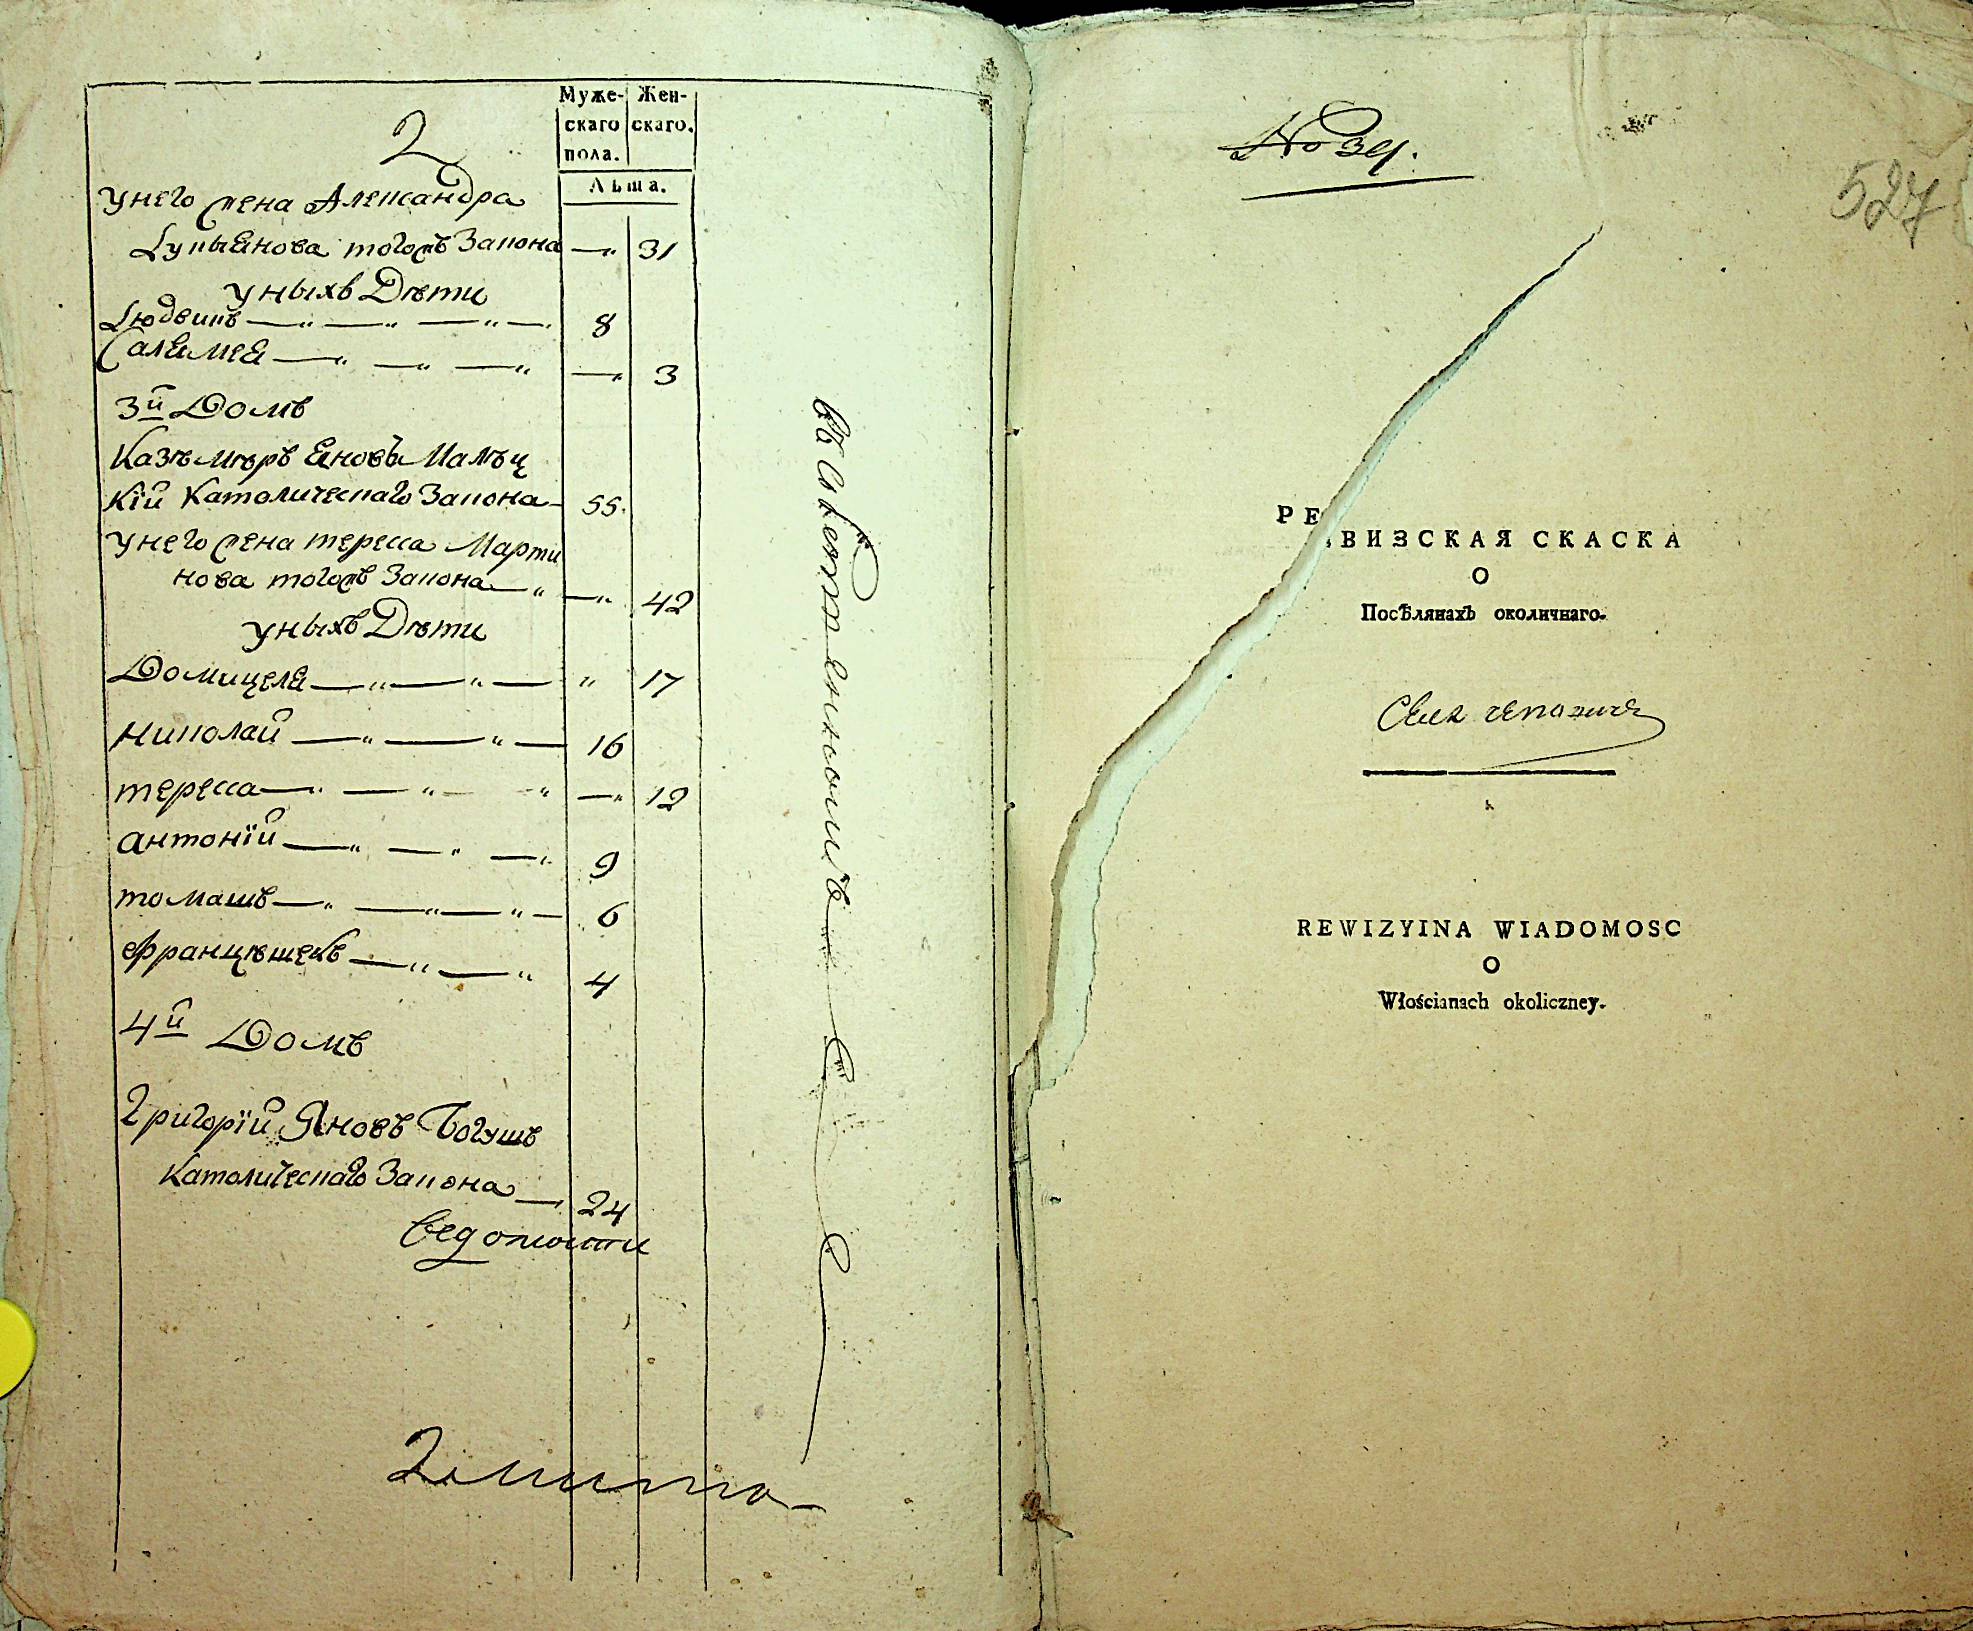 Муже-
скаго
пола.
Жен-
скаго.
Лѣта.
2
унего жена Александра
Лукъянова тогожъ Закона — 31
уныхъ Дѣти
Людвикъ 8
Саламея — 3
3й Домъ
Казѣмѣръ Яновъ Малец
кій Католическаго Закона 55.
унего жена тересса Марти
нова тогожъ Закона — 42
уныхъ Дѣти
Домицеля " 17
Николай 16
тересса — 12
антоній 9
томашъ 6
Францѣшекъ 4
4й Домъ
Григорій Яновъ Богушъ
Католическаго Закона 24
No 34.
527
РЕВИЗСКАЯ СКАСКА
О
Посѣлянахъ околичнаго.
REWIZYINA WIADOMOSC
O
Włościanach okoliczney.